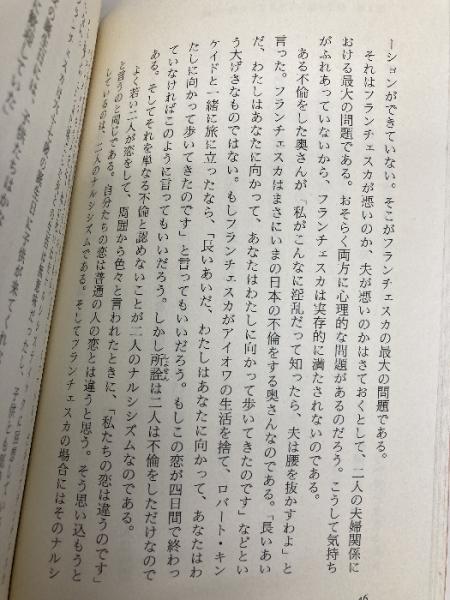 ーションができていない。そこがフランチェスカの最大の問題である。
それはフランチェスカが悪いのか、夫が悪いのかはさておくとして、二人の夫婦関係に
おける最大の問題である。おそらく両方に心理的な問題があるのだろう。こうして気持ち
がふれあっていないから、フランチェスカは実存的に満たされないのである。
ある不倫をした奥さんが「私がこんなに淫乱だって知ったら、夫は腰を抜かすわよ」と
言った。フランチェスカはまさにいまの日本の不倫をする奥さんなのである。「長いあい
だ、わたしはあなたに向かって、あなたはわたしに向かって歩いてきたのです」などとい
う大げさなものではない。もしフランチェスカがアイオワの生活を捨て、ロバート・キン
ケイドと一緒に旅に立ったなら、「長いあいだ、わたしはあなたに向かって、あなたはわ
たしに向かって歩いてきたのです」と言ってもいいだろう。もしこの恋が四日間で終わっ
ていなければこのように言ってもいいだろう。しかし所詮は二人は不倫をしただけなので
ある。そしてそれを単なる不倫と認めないことが二人のナルシシズムなのである。
よく若い二人が恋をして、周囲から色々と言われたときに、「私たちの恋は違うのです」
と言うのと同じである。自分たちの恋は普通の人の恋とは違うと思う。そう思い込もうと
しているのは、二人のナルシシズムである。そしてフランチェスカの場合にはそのナルシ
46